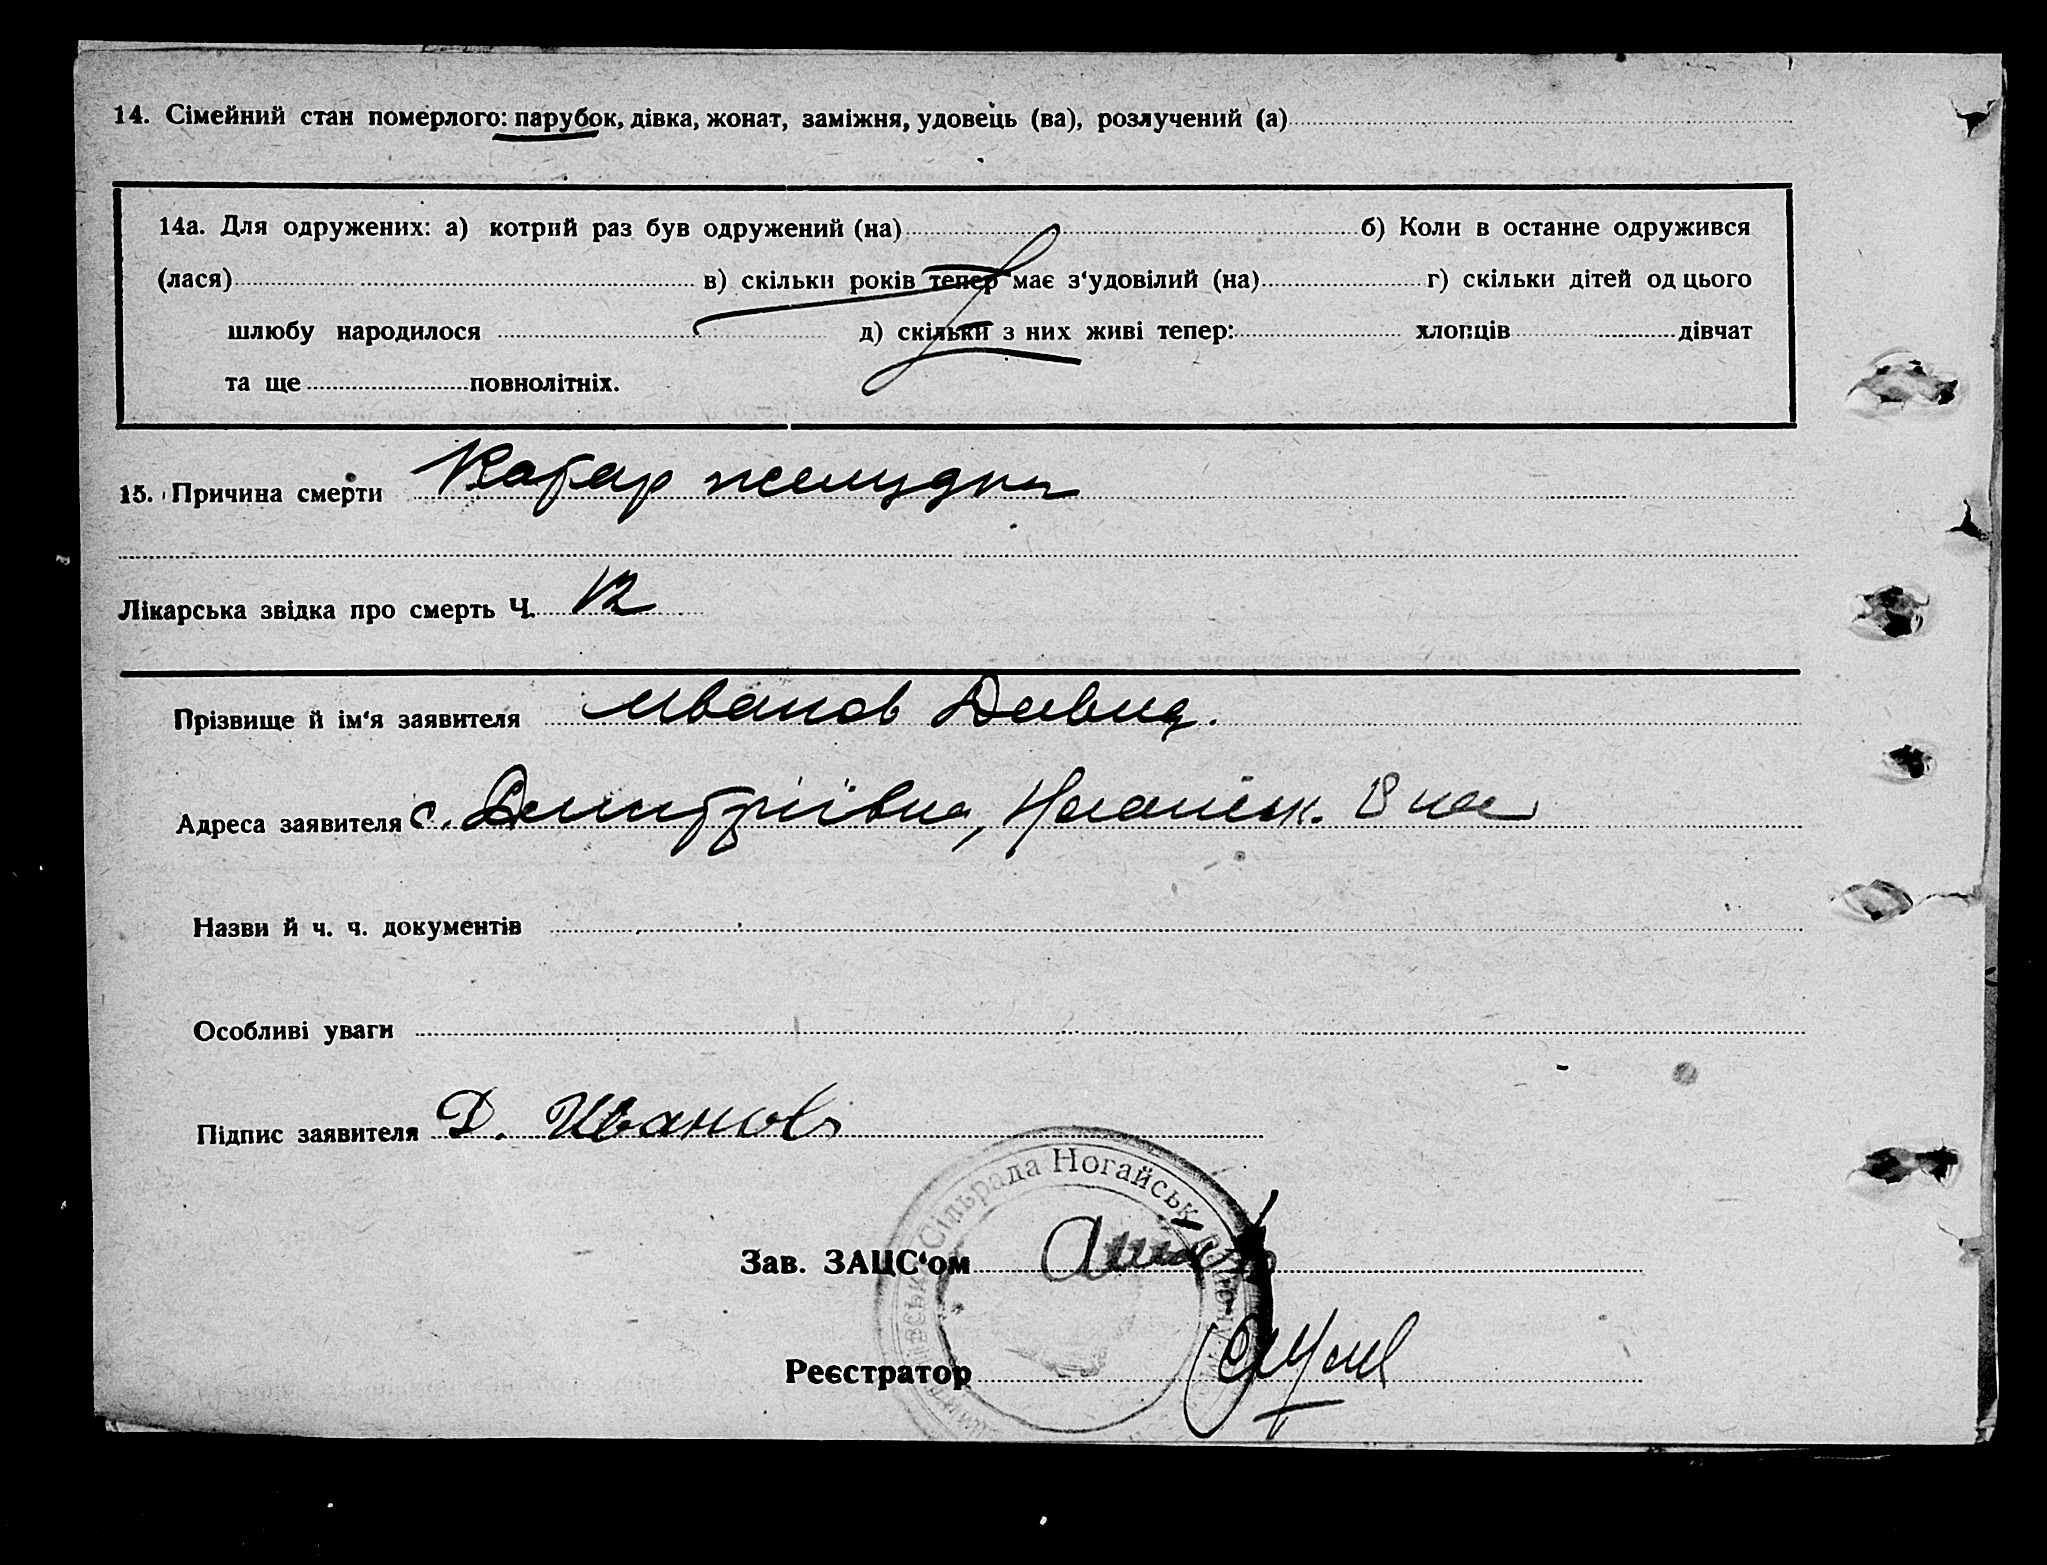 14. Сімейний стан померлого: парубок, дівка, жонат, заміжня, удовець (ва), розлучений (а)
14а. Для одружених: а) котрий раз був одружений (на) б) Коли в останне одружився
(лася) в) скільки років тепер має з‘удовілий (на) г) скільки дітей од цього
шлюбу народилося д) скільки з них живі тепер: хлопців дівчат
та ще повнолітніх.
15. Причина смерти Катар желудка
Лікарська звідка про смерть Ч.
Прізвище й ім‘я заявителя Иванов Давид.
Адреса заявителя с. Дмитріївка,
Назви й ч. ч. документів
Особливі уваги
Підпис заявителя Д. Иванов
Сільрада Ногайськ
Зав. ЗАЦС‘ом
Реєстратор